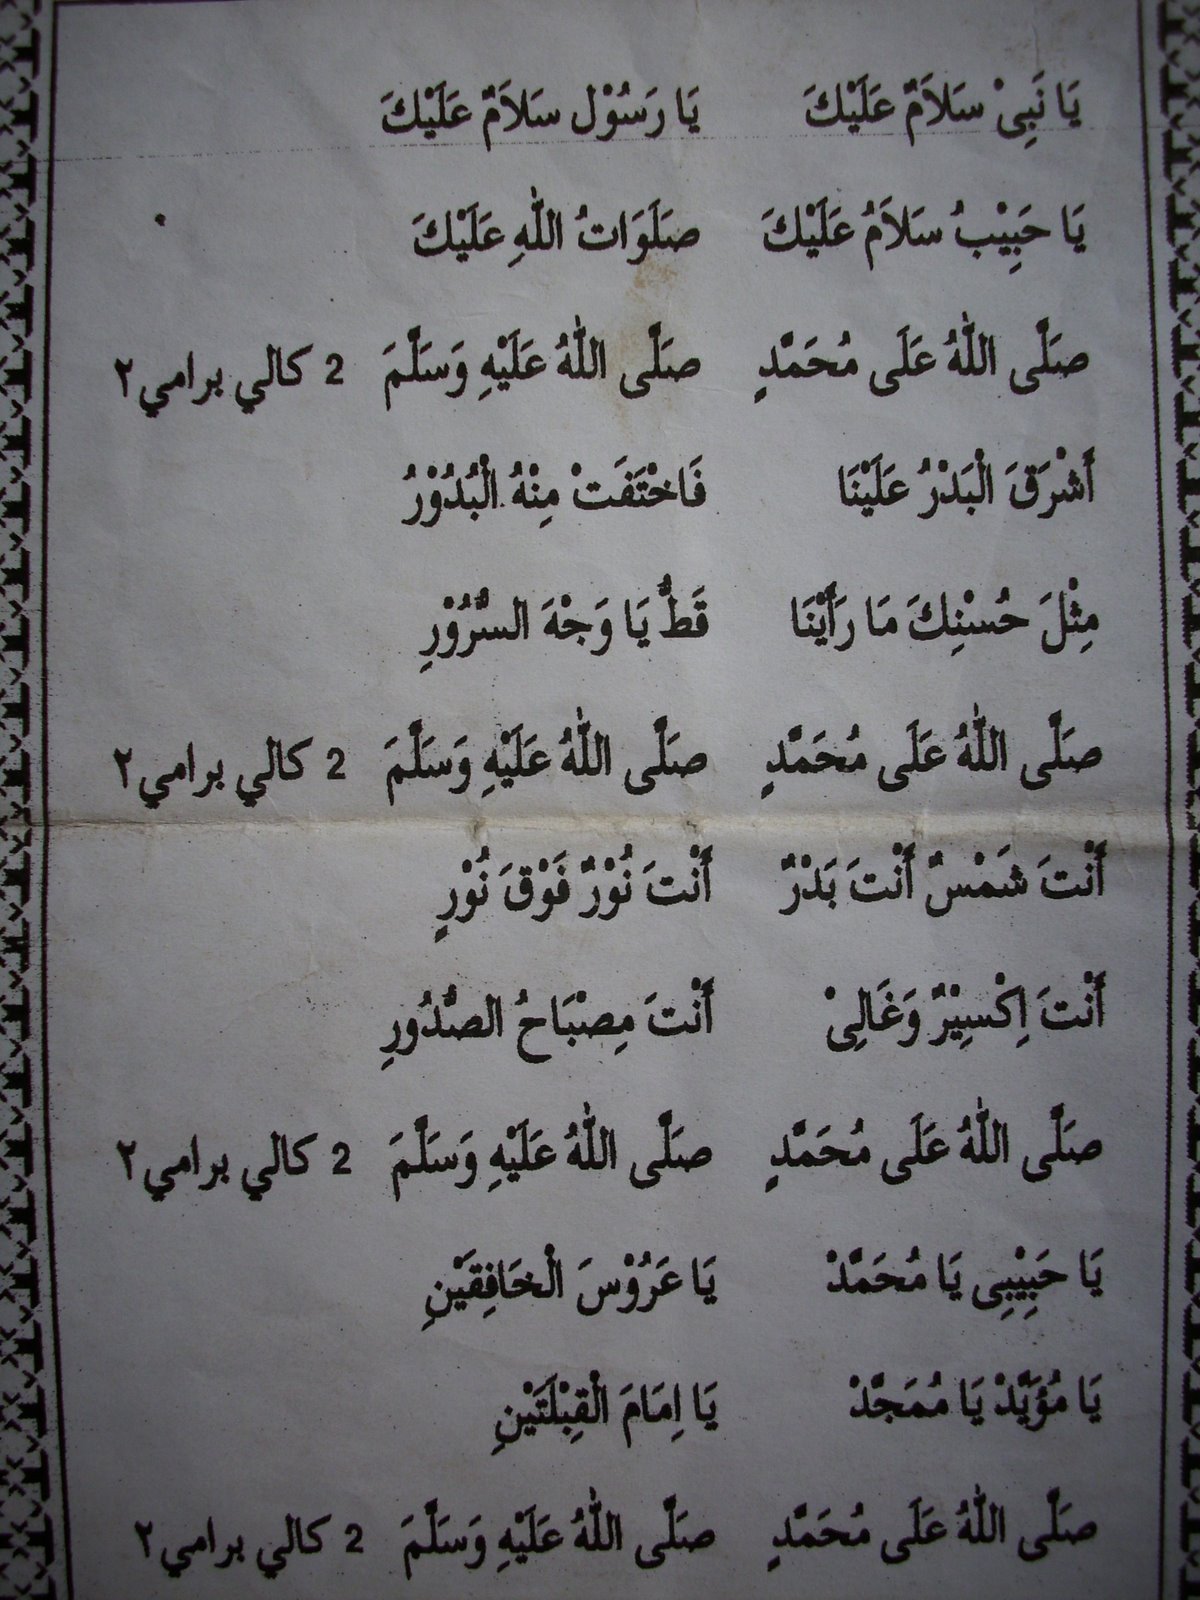 يَا نَبِىْ سَلاَمٌ عَلَيْكَ يَا رَسُوْل سَلاَمٌ عَلَيْكَ
يَا حَبِيْبُ سَلاَمُ عَلَيْكَ صَلَوَاتُ اللهِ عَلَيْكَ
صَلَّى اللهُ عَلَى مُحَمَّدٍ صَلَّى اللهُ عَلَيْهِ وَسَلَّمَ 2 كالي برامي٢
أَشْرَقَ الْبَدْرُ عَلَيْنَا فَاخْتَفَتْ مِنْهُ الْبُدُوْرُ
مِثْلَ حُسْنِكَ مَا رَأَيْنَا قَطُّ يَا وَجْهَ السُّرُوْرِ
صَلَّى اللهُ عَلَى مُحَمَّدٍ صَلَّى اللهُ عَلَيْهِ وَسَلَّمَ 2 كالي برامي٢
أَنْتَ شَمْسٌ أَنْتَ بَدْرٌ أَنْتَ نُوْرٌ فَوْقَ نُوْرٍ
أَنْتَ اِكْسِيْرٌ وَغَالِىْ أَنْتَ مِصْبَاحُ الصُّدُورِ
صَلَّى اللهُ عَلَى مُحَمَّدٍ صَلَّى اللهُ عَلَيْهِ وَسَلَّمَ 2 كالي برامي٢
يَا حَبِيْبِى يَا مُحَمَّدْ يَا عَرُوْسَ الْخَافِقَيْنِ
يَا مُؤَيَّدْ يَا مُمَجَّدْ يَا اِمَامَ الْقِبْلَتَيْنِ
صَلَّى اللهُ عَلَى مُحَمَّدٍ صَلَّى اللهُ عَلَيْهِ وَسَلَّمَ 2 كالي برامي٢